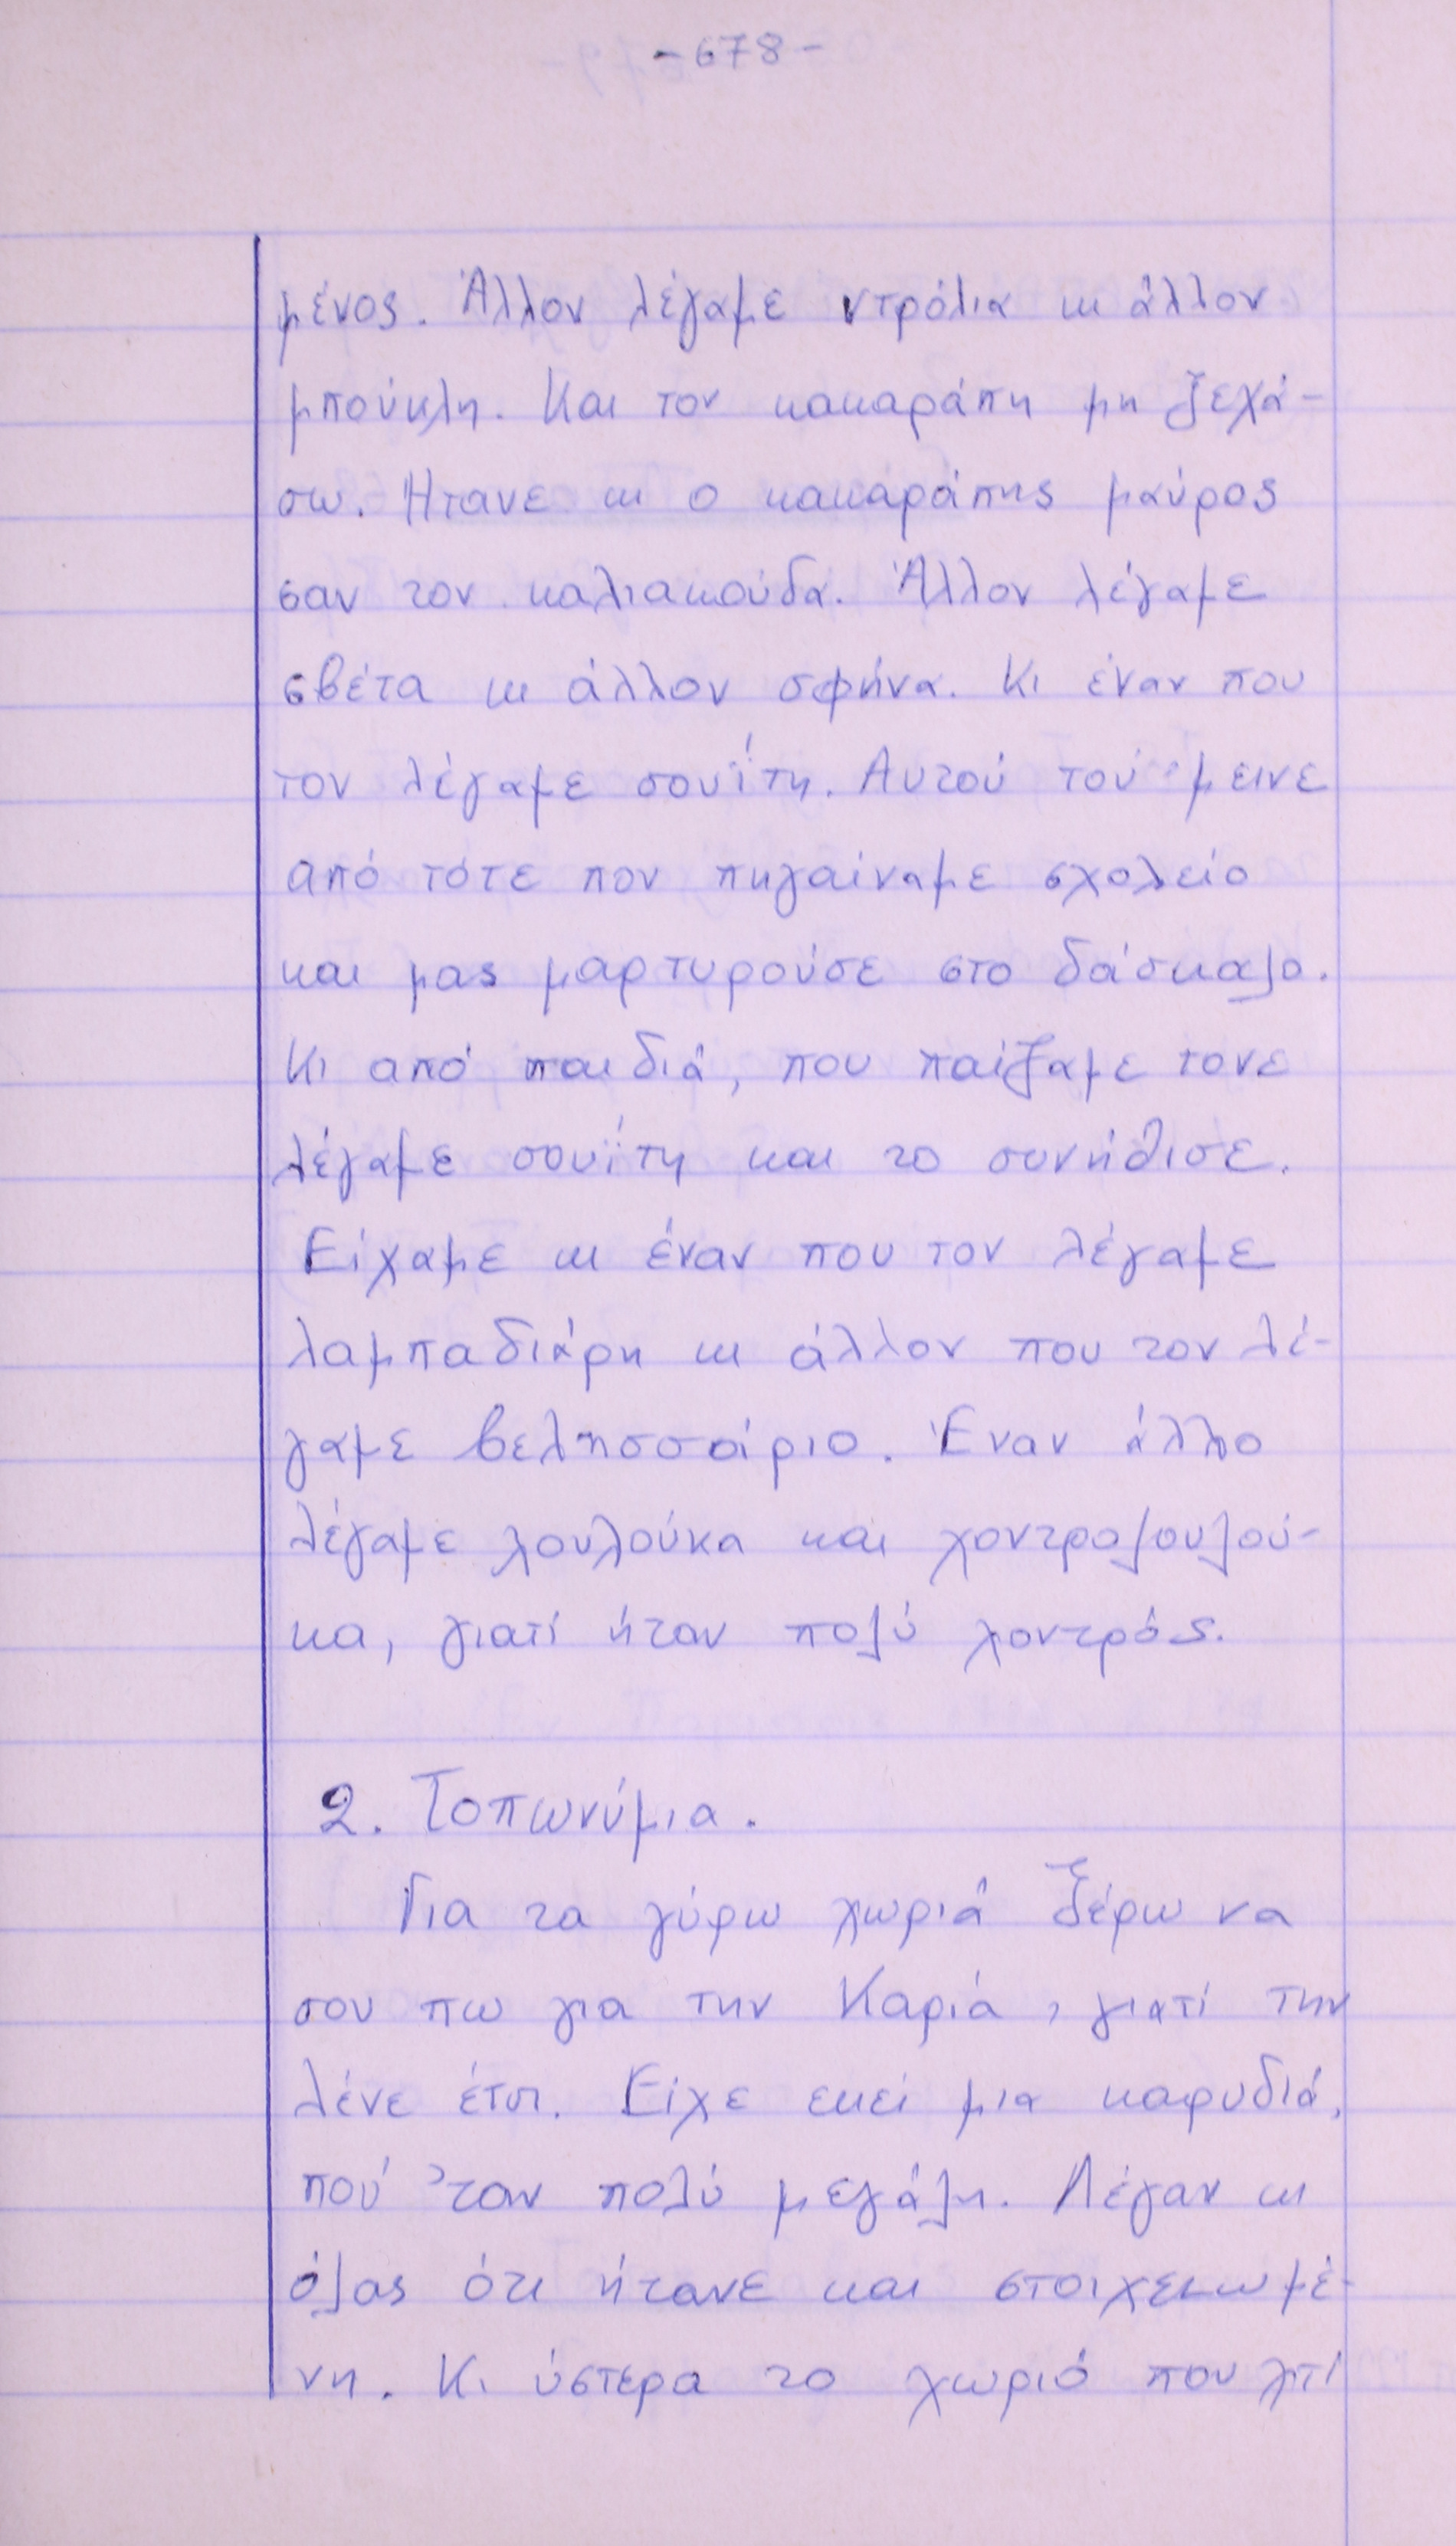 -678-
μένος. Άλλον λέγαμε ντρόλια κι άλλον
μπούκλη. Και τον κακαράπη μη ξεχά-
σω. Ήτανε κι ο κακαράπης μαύρος
σαν τον καλιακούδα. Άλλον λέγαμε
σβέτα κι άλλον σφήνα. Κι έναν που
τον λέγαμε σουΐτη. Αυτού τού 'μεινε
από τότε που πηγαίναμε σχολείο
και μας μαρτυρούσε στο δάσκαλο.
Κι από παιδιά, που παίζαμε τονε
λέγαμε σουΐτη και το συνήθισε.
Είχαμε κι έναν που τον λέγαμε
λαμπαδιάρη κι άλλον που τον λέ-
γαμε βελησσάριο. Έναν άλλο
λέγαμε λουλούκα και χοντρολουλού-
κα, γιατί ήταν πολύ χοντρός.
2. Τοπωνύμια.
Για τα γύρω χωριά ξέρω να
σου πω για την Καριά, γιατί την
λένε έτσι. Είχε εκεί μια καρυδιά,
πού 'ταν πολύ μεγάλη. Λέγαν κι
όλας ότι ήτανε και στοιχειωμέ-
νη. Κι ύστερα το χωριό που χτί